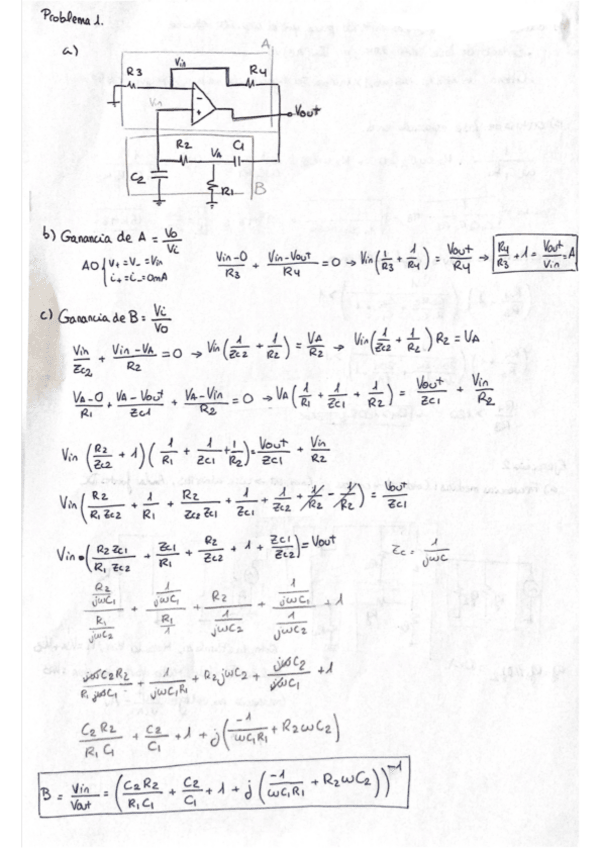 Problema 1.
a)
A
R3
Vin
R4
Vin
-
+
Vout
R2
VA
C1
C2
R1
B
b) Ganancia de A = Vo/Vi
AO { V+ = V- = Vin
i+ = i- = 0mA
(Vin-0)/R3 + (Vin-Vout)/R4 = 0 → Vin(1/R3 + 1/R4) = Vout/R4 → R4/R3 + 1 = Vout/Vin = A
c) Ganancia de B = Vi/Vo
Vin/Zc2 + (Vin-VA)/R2 = 0 → Vin(1/Zc2 + 1/R2) = VA/R2 → Vin(1/Zc2 + 1/R2) R2 = VA
(VA-0)/R1 + (VA-Vout)/Zc1 + (VA-Vin)/R2 = 0 → VA(1/R1 + 1/Zc1 + 1/R2) = Vout/Zc1 + Vin/R2
Vin (R2/Zc2 + 1)(1/R1 + 1/Zc1 + 1/R2) = Vout/Zc1 + Vin/R2
Vin(R2/(R1 Zc2) + 1/R1 + R2/(Zc2 Zc1) + 1/Zc1 + 1/Zc2 + 1/R2 - 1/R2) = Vout/Zc1
Vin·(R2 Zc1/(R1 Zc2) + Zc1/R1 + R2/Zc2 + 1 + Zc1/Zc2) = Vout
Zc = 1/jωC
(R2/jωC1)/(R1/jωC2) + (1/jωC1)/(R1/1) + R2/(1/jωC2) + (1/jωC1)/(1/jωC2) + 1
jωC2R2/(R1 jωC1) + 1/(jωC1R1) + R2jωC2 + jωC2/jωC1 + 1
C2R2/(R1C1) + C2/C1 + 1 + j(-1/(ωC1R1) + R2ωC2)
B = Vin/Vout = (C2R2/(R1C1) + C2/C1 + 1 + j(-1/(ωC1R1) + R2ωC2))^-1